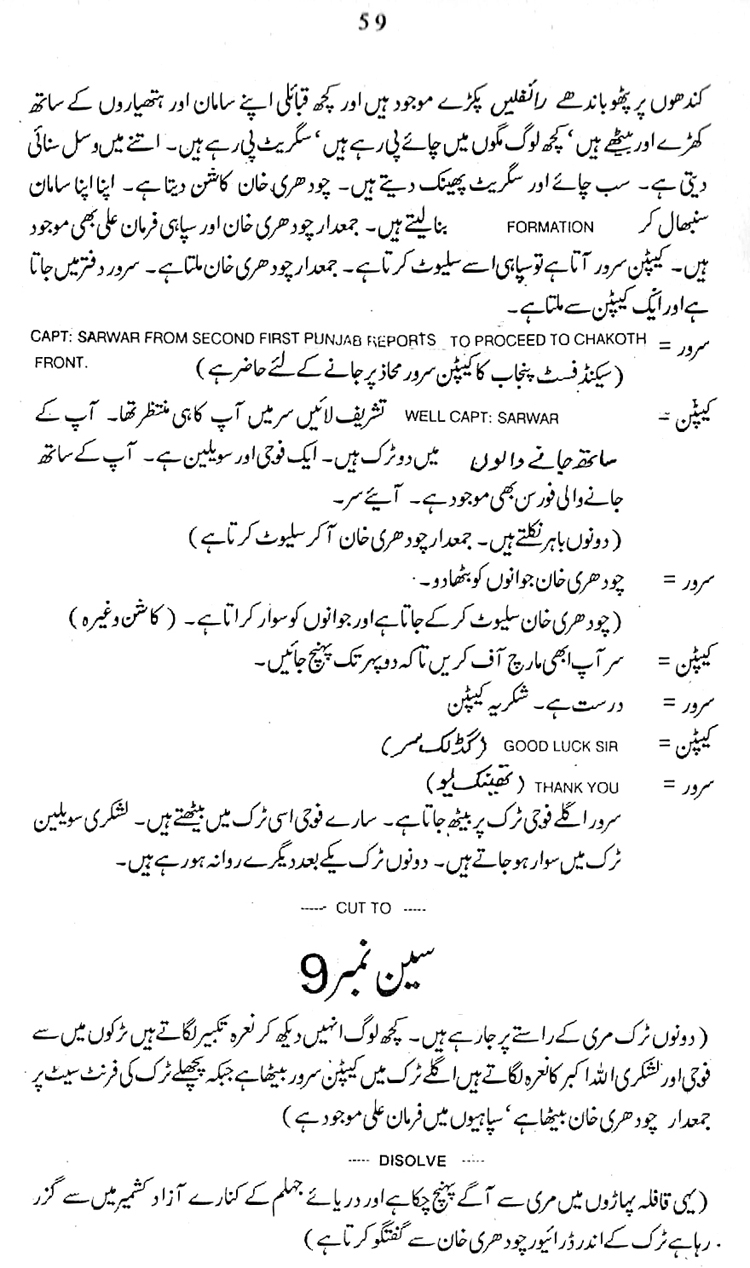 59
کندھوں پر پٹھو باندھے رائفلیں پکڑے موجود ہیں اور کچھ قبائلی اپنے سامان اور ہتھیاروں کے ساتھ
کھڑے اور بیٹھے ہیں‘ کچھ لوگ مگوں میں چائے پی رہے ہیں‘ سگریٹ پی رہے ہیں۔ اتنے میں وسل سنائی
دیتی ہے۔ سب چائے اور سگریٹ پھینک دیتے ہیں۔ چودھری خان کاشن دیتا ہے۔ اپنا اپنا سامان
سنبھال کر FORMATION بنا لیتے ہیں۔ جمعدار چودھری خان اور سپاہی فرمان علی بھی موجود
ہیں۔ کیپٹن سرور آتا ہے تو سپاہی اسے سلیوٹ کرتا ہے۔ جمعدار چودھری خان ملتا ہے۔ سرور دفتر میں جاتا
ہے اور ایک کیپٹن سے ملتا ہے۔
سرور = CAPT: SARWAR FROM SECOND FIRST PUNJAB REPORTS TO PROCEED TO CHAKOTH
FRONT. (سیکنڈ فسٹ پنجاب کا کیپٹن سرور محاذ پر جانے کے لئے حاضر ہے)
کیپٹن = WELL CAPT: SARWAR تشریف لائیں سر میں آپ کا ہی منتظر تھا۔ آپ کے
ساتھ جانے والوں میں دو ٹرک ہیں۔ ایک فوجی اور سویلین ہے۔ آپ کے ساتھ
جانے والی فورس بھی موجود ہے۔ آیئے سر۔
(دونوں باہر نکلتے ہیں۔ جمعدار چودھری خان آ کر سلیوٹ کرتا ہے)
سرور = چودھری خان جوانوں کو بٹھا دو۔
(چودھری خان سلیوٹ کر کے جاتا ہے اور جوانوں کو سوار کراتا ہے۔ (کاشن وغیرہ)
کیپٹن = سر آپ ابھی مارچ آف کریں تاکہ دوپہر تک پہنچ جائیں۔
سرور = درست ہے۔ شکریہ کیپٹن
کیپٹن = GOOD LUCK SIR (گڈ لک سر)
سرور = THANK YOU (تھینک یو)
سرور اگلے فوجی ٹرک پر بیٹھ جاتا ہے۔ سارے فوجی اسی ٹرک میں بیٹھتے ہیں۔ لشکری سویلین
ٹرک میں سوار ہو جاتے ہیں۔ دونوں ٹرک یکے بعد دیگرے روانہ ہو رہے ہیں۔
----- CUT TO -----
سین نمبر 9
(دونوں ٹرک مری کے راستے پر جا رہے ہیں۔ کچھ لوگ انہیں دیکھ کر نعرہ تکبیر لگاتے ہیں ٹرکوں میں سے
فوجی اور لشکری اللہ اکبر کا نعرہ لگاتے ہیں اگلے ٹرک میں کیپٹن سرور بیٹھا ہے جبکہ پچھلے ٹرک کی فرنٹ سیٹ پر
جمعدار چودھری خان بیٹھا ہے‘ سپاہیوں میں فرمان علی موجود ہے)
----- DISOLVE -----
(یہی قافلہ پہاڑوں میں مری سے آگے پہنچ چکا ہے اور دریائے جہلم کے کنارے آزاد کشمیر میں سے گزر
رہا ہے ٹرک کے اندر ڈرائیور چودھری خان سے گفتگو کرتا ہے)